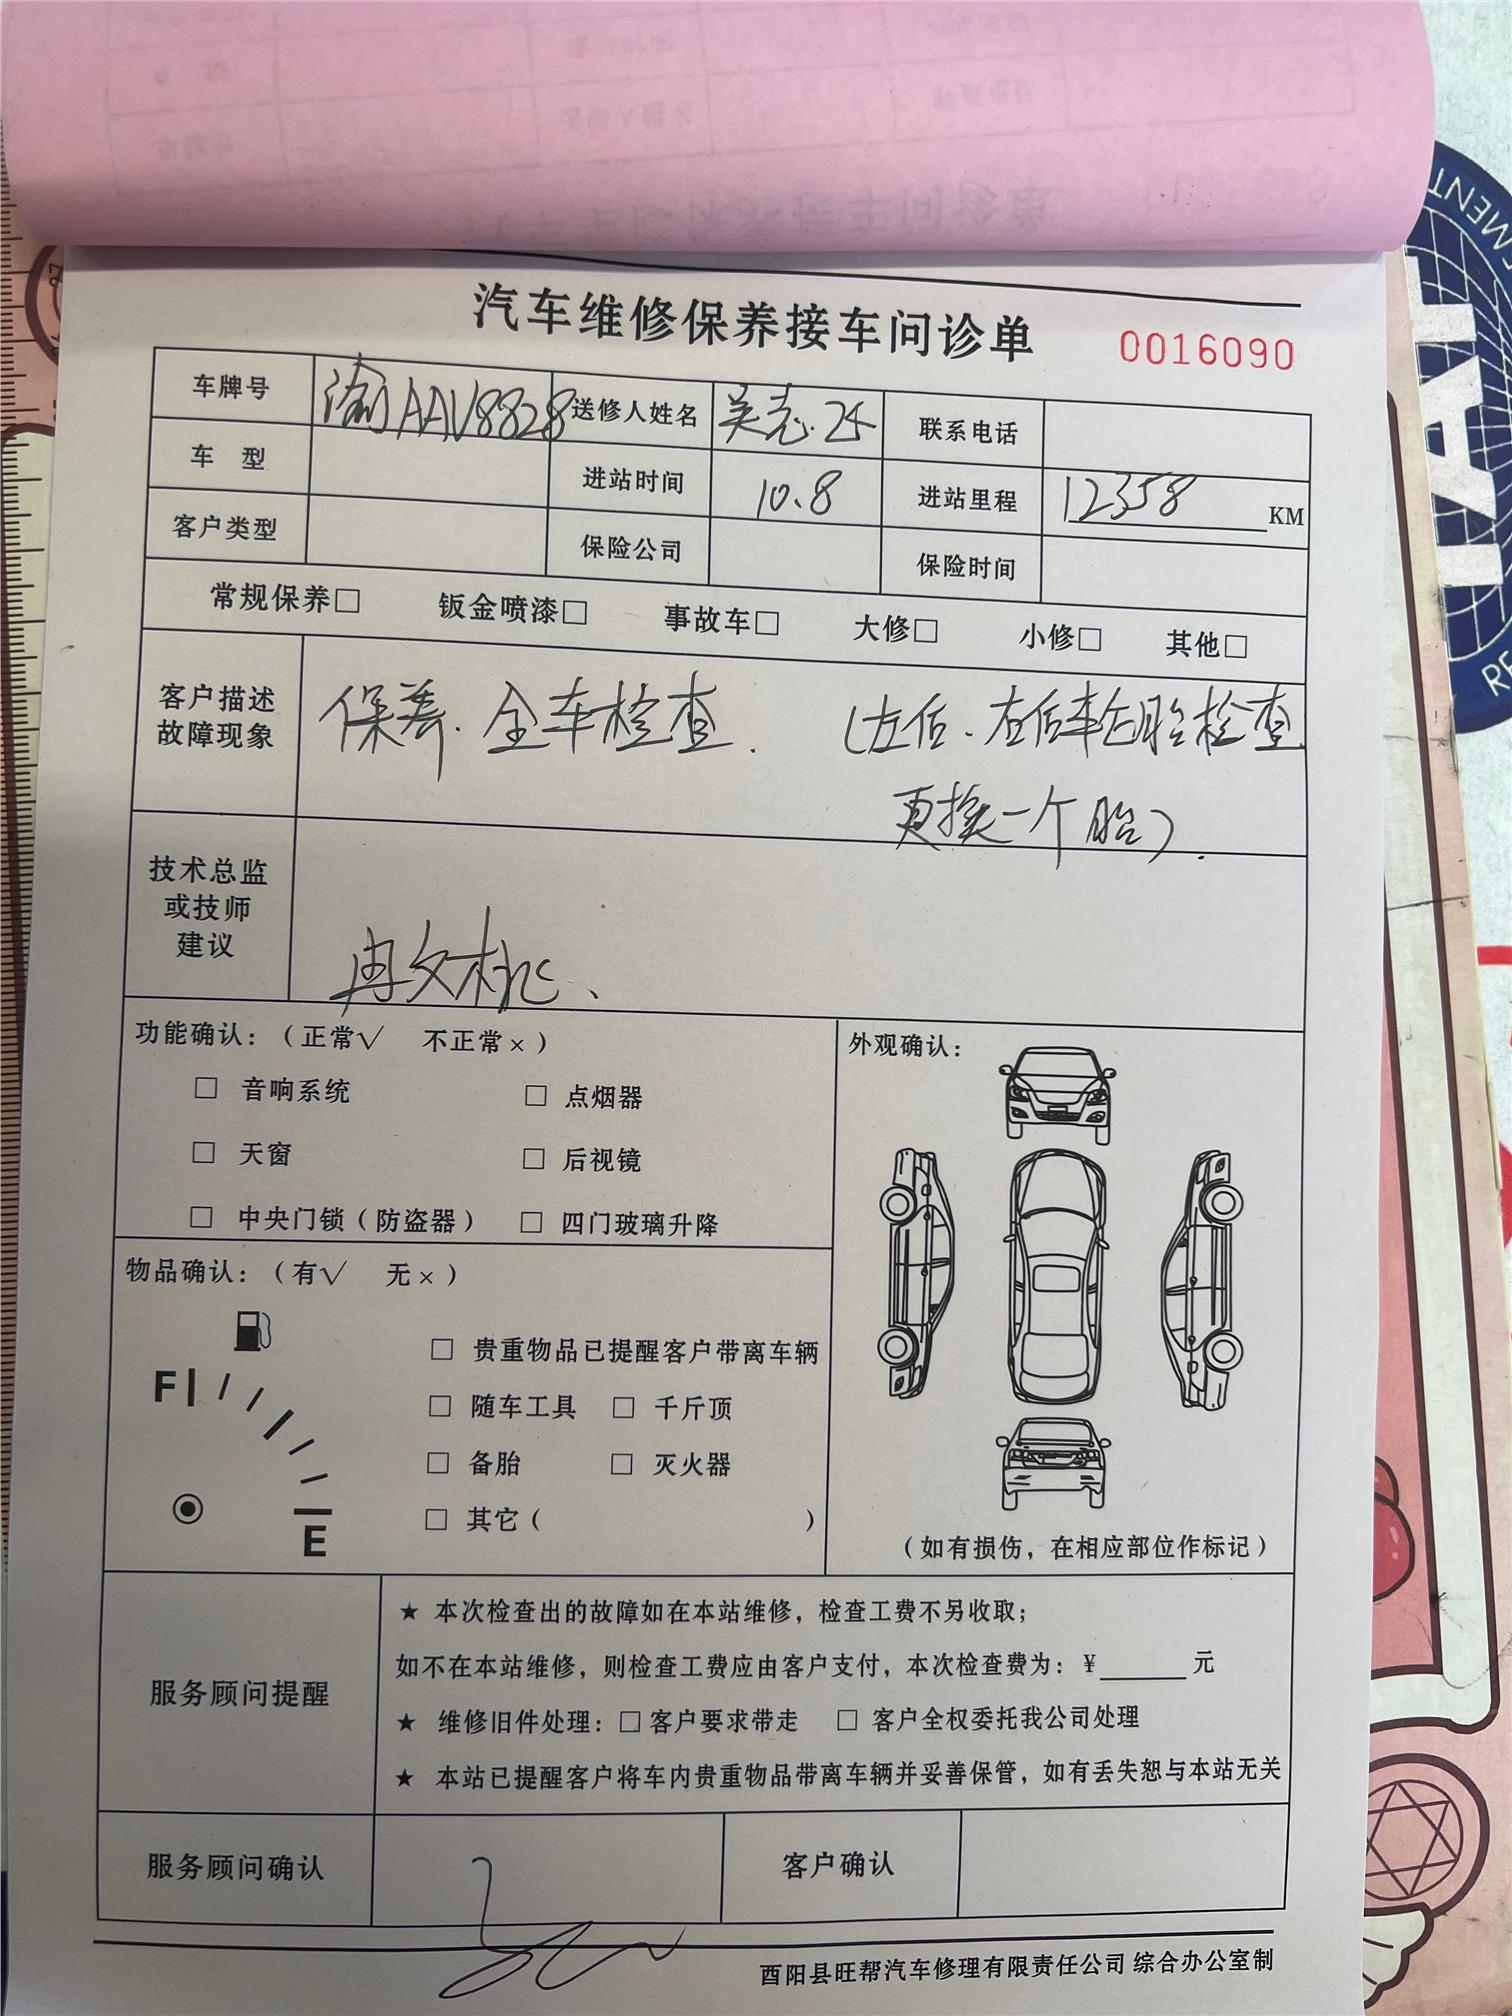 汽车维修保养接车问诊单
0016090
车牌号 渝AAV8828 送修人姓名 吴志 联系电话
车 型 进站时间 10.8 进站里程 12358 KM
客户类型 保险公司 保险时间
常规保养□ 钣金喷漆□ 事故车□ 大修□ 小修□ 其他□
客户描述
故障现象
保养.全车检查. (左后.右后车轮胎检查
更换一个胎).
技术总监
或技师
建议
冉文桃、
功能确认:(正常√ 不正常×)
□ 音响系统 □ 点烟器
□ 天窗 □ 后视镜
□ 中央门锁(防盗器) □ 四门玻璃升降
外观确认:
(如有损伤,在相应部位作标记)
物品确认:(有√ 无×)
F
E
□ 贵重物品已提醒客户带离车辆
□ 随车工具 □ 千斤顶
□ 备胎 □ 灭火器
□ 其它( )
服务顾问提醒
★ 本次检查出的故障如在本站维修,检查工费不另收取;
如不在本站维修,则检查工费应由客户支付,本次检查费为:¥______元
★ 维修旧件处理:□客户要求带走 □ 客户全权委托我公司处理
★ 本站已提醒客户将车内贵重物品带离车辆并妥善保管,如有丢失恕与本站无关
服务顾问确认 客户确认
酉阳县旺帮汽车修理有限责任公司 综合办公室制